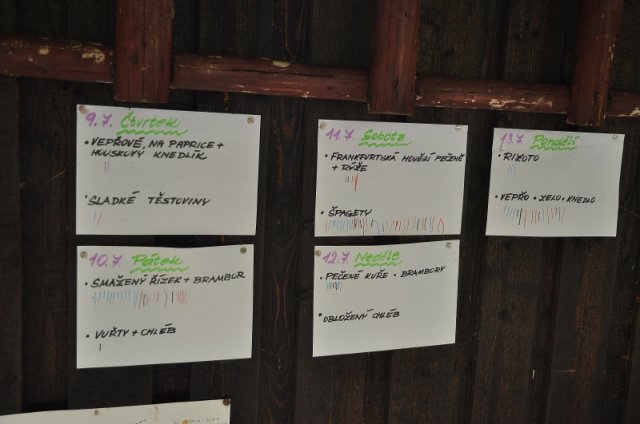 9.7. Čtvrtek
• VEPŘOVÉ, NA PAPRICE +
HOUSKOVÝ KNEDLÍK
• SLADKÉ TĚSTOVINY
10.7. Pátek
• SMAŽENÝ ŘÍZEK + BRAMBOR
• VUŘTY + CHLÉB
11.7. Sobota
• FRANKFURTSKÁ HOVĚZÍ PEČENĚ
+ RÝŽE
• ŠPAGETY
12.7. Neděle
• PEČENÉ KUŘE + BRAMBORY
• OBLOŽENÝ CHLÉB
13.7. Pondělí
• RIZOTO
• VEPŘO + ZELO + KNEDLO